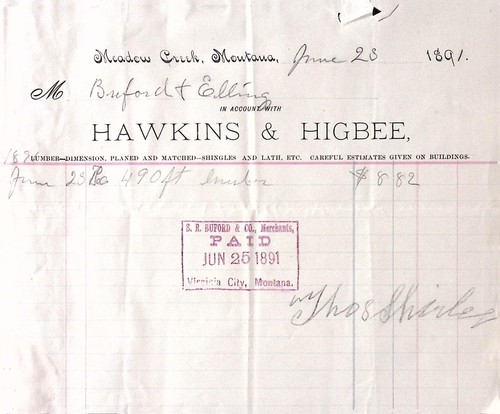 Meadow Creek, Montana, June 23 1891.
M Buford & Elling
IN ACCOUNT WITH
HAWKINS & HIGBEE,
LUMBER—DIMENSION, PLANED AND MATCHED—SHINGLES AND LATH, ETC. CAREFUL ESTIMATES GIVEN ON BUILDINGS.
June 23 490 ft lumber $8.82
S. R. BUFORD & CO., Merchants,
PAID
JUN 25 1891
Virginia City, Montana.
Thos Shirley